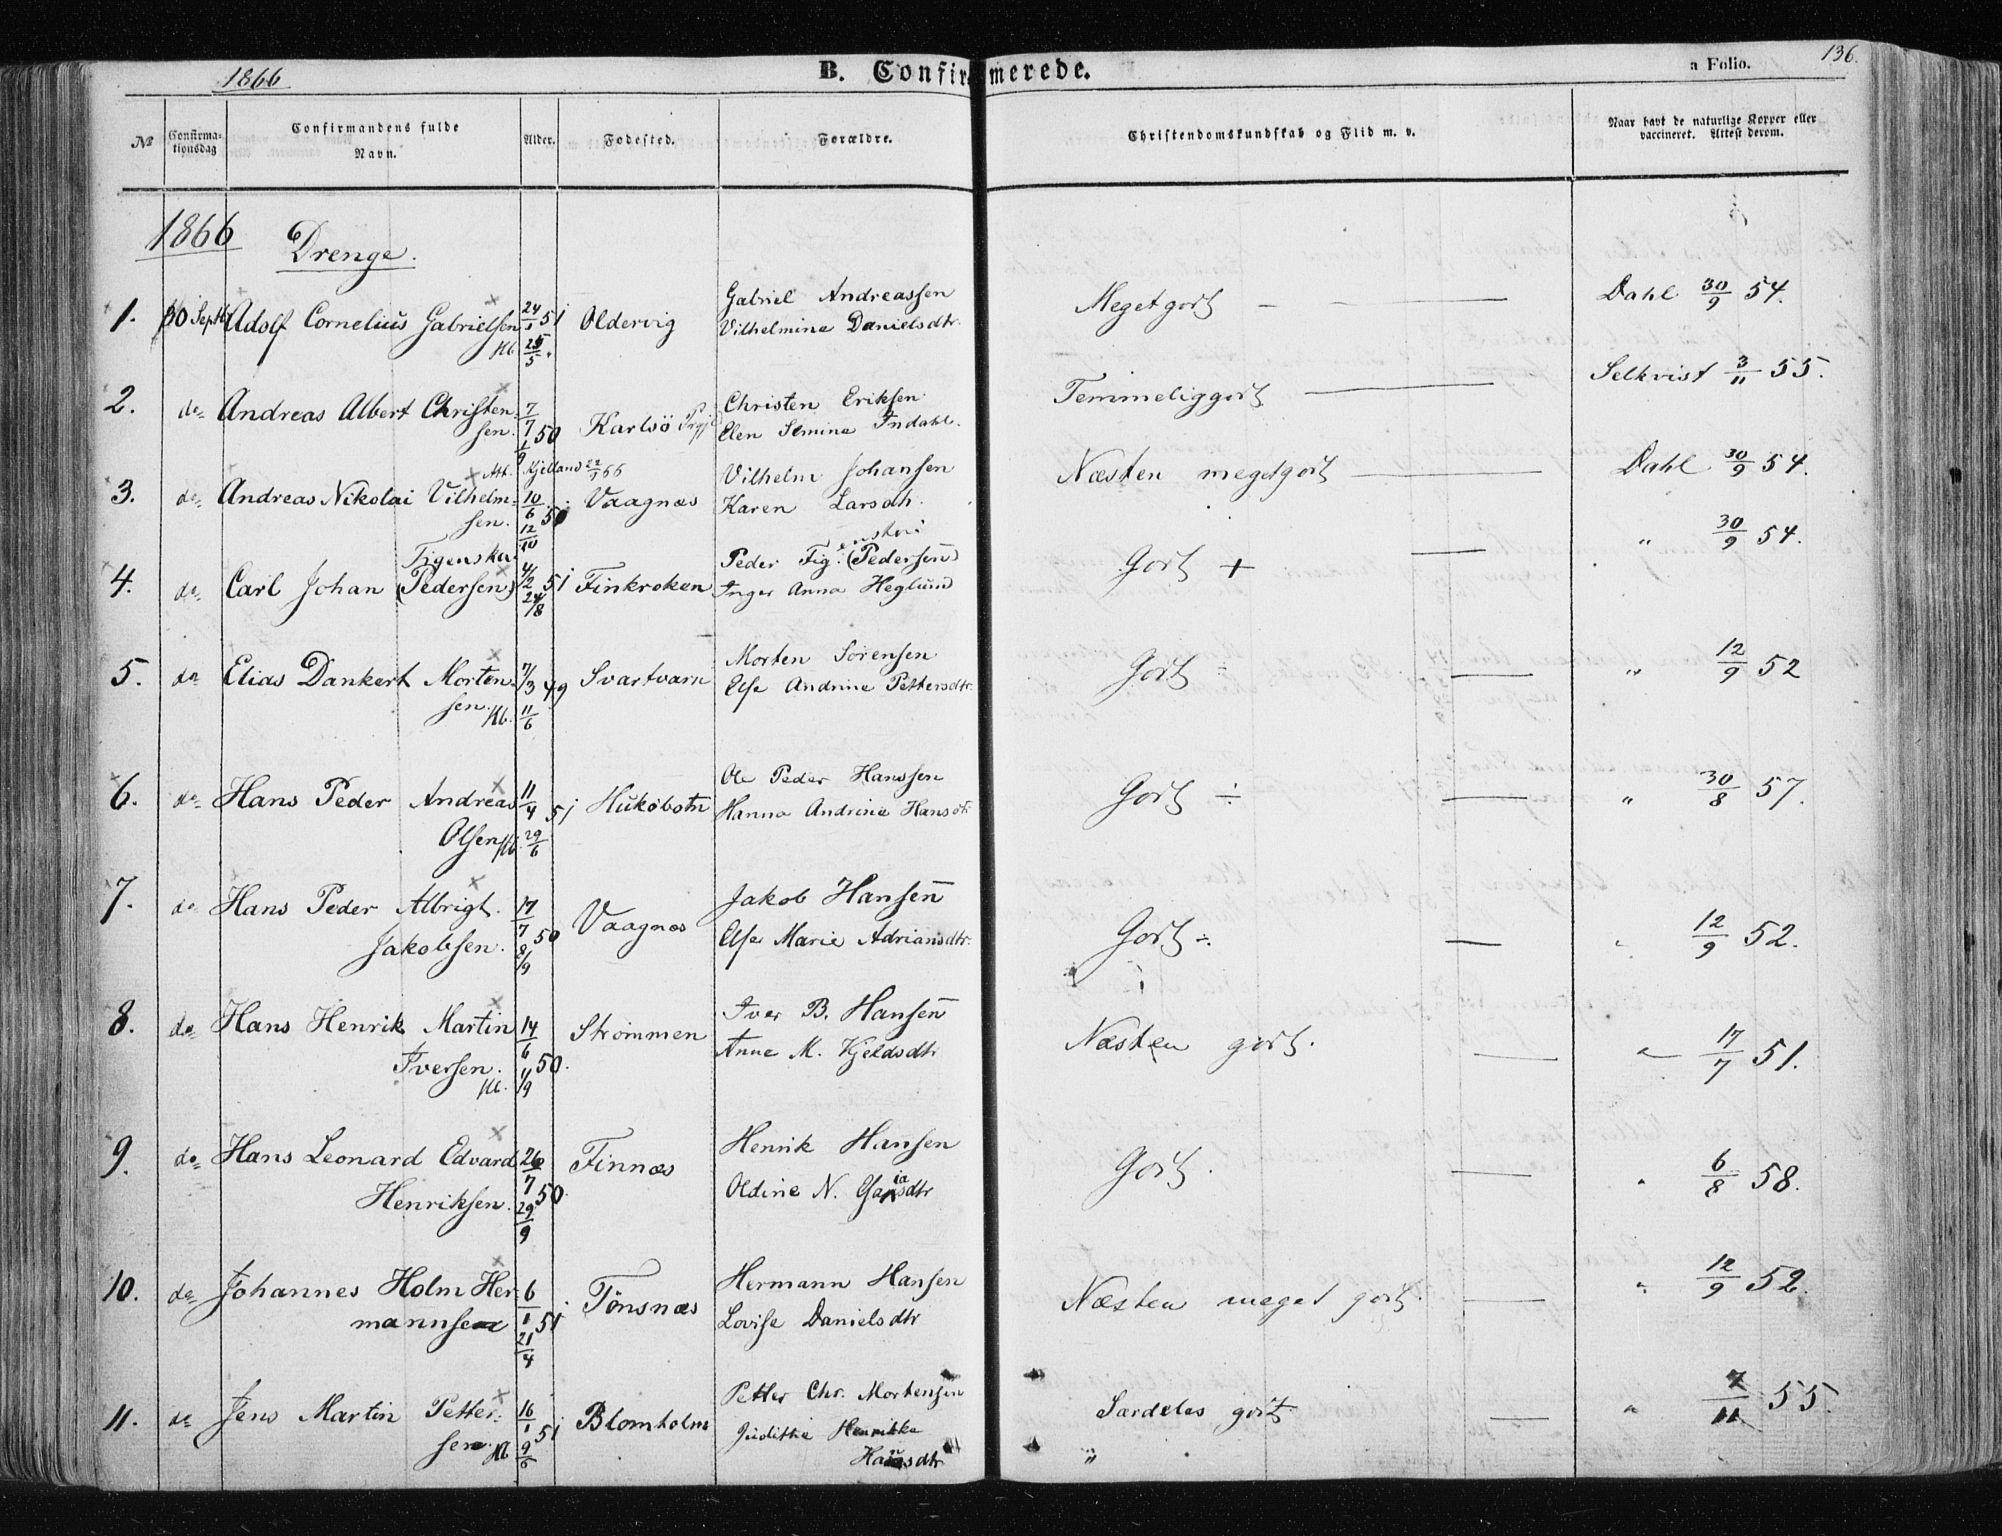 1866
B. Confirmerede.
a Folio.
136.
№
Confirma-
tionsdag
Confirmandens fulde
Navn.
Alder.
Fødested.
Forældre.
Christendomskundskab og Flid m. v.
Naar havt de naturlige Kopper eller
vaccineret. Attest derom.
1866
Drenge.
1. 30 Septbr Adolf Cornelius Gabrielsen 24/1 51 Oldervig Gabriel Andreassen Meget godt — — Dahl 30/9 54.
Kb. 25/5. Vilhelmine Danielsdtr.
2. do Andreas Albert Christen- 7/7 50 Karlsö Christen Eriksen Temmelig godt — Selkvist 3/11 55.
sen. Elen Indahl.
Att. Kjelland 22/1 66
3. do Andreas Nikolai Vilhelm- 10/6 50 Vaagnæs Vilhelm Johansen Næsten meget godt — Dahl 30/9 54.
sen. 12/10 Karen Larsdtr.
4. do Carl Johan (Pedersen) 4/2 51 Finkroken Peder Fig: (Pedersen) Godt + — " 30/9 54.
24/8 Inger Anna Heglund
5. do Elias Dankert Morten- 7/3 49 Svartvarn Morten Sörensen Godt ÷ — " 12/9 52
sen. Kb. 11/6 Else Andrine Pettersdtr.
6. do Hans Peder Andreas 11/4 51 Ole Peder Hanssen Godt ÷ — " 30/8 57.
Olsen Kb. 29/6 Hanna Andrine Hansdtr
7. do Hans Peder Albrigt. 17/7 50 Vaagnæs Jakob Hansen Godt ÷ — " 12/9 52.
Jakobsen. 8/9 Else Marie Adriansdtr.
8. do Hans Henrik Martin 14/6 50. Strømmen Iver B. Hansen Næsten godt. — " 17/7 51.
Iversen. Kb. 11/9 Anne M. Kjeldsdtr
9. do Hans Leonard Edvard 26/7 50. Finnæs Henrik Hansen Godt. — " 6/8 58.
Henriksen. 29/9 Oldine N.
10. do Johannes Holm Her- 6/1 51 Tönsnæs Hermann Hansen Næsten meget godt. — " 12/9 52.
mannsen 21/4 Lovise Danielsdtr
11. do Jens Martin Petter- 16/1 51 Blomholm Petter Chr. Mortensen Særdeles godt. — " 7/11 55.
sen. Kb 9/6 Judithe Henrikke "
Hansdtr